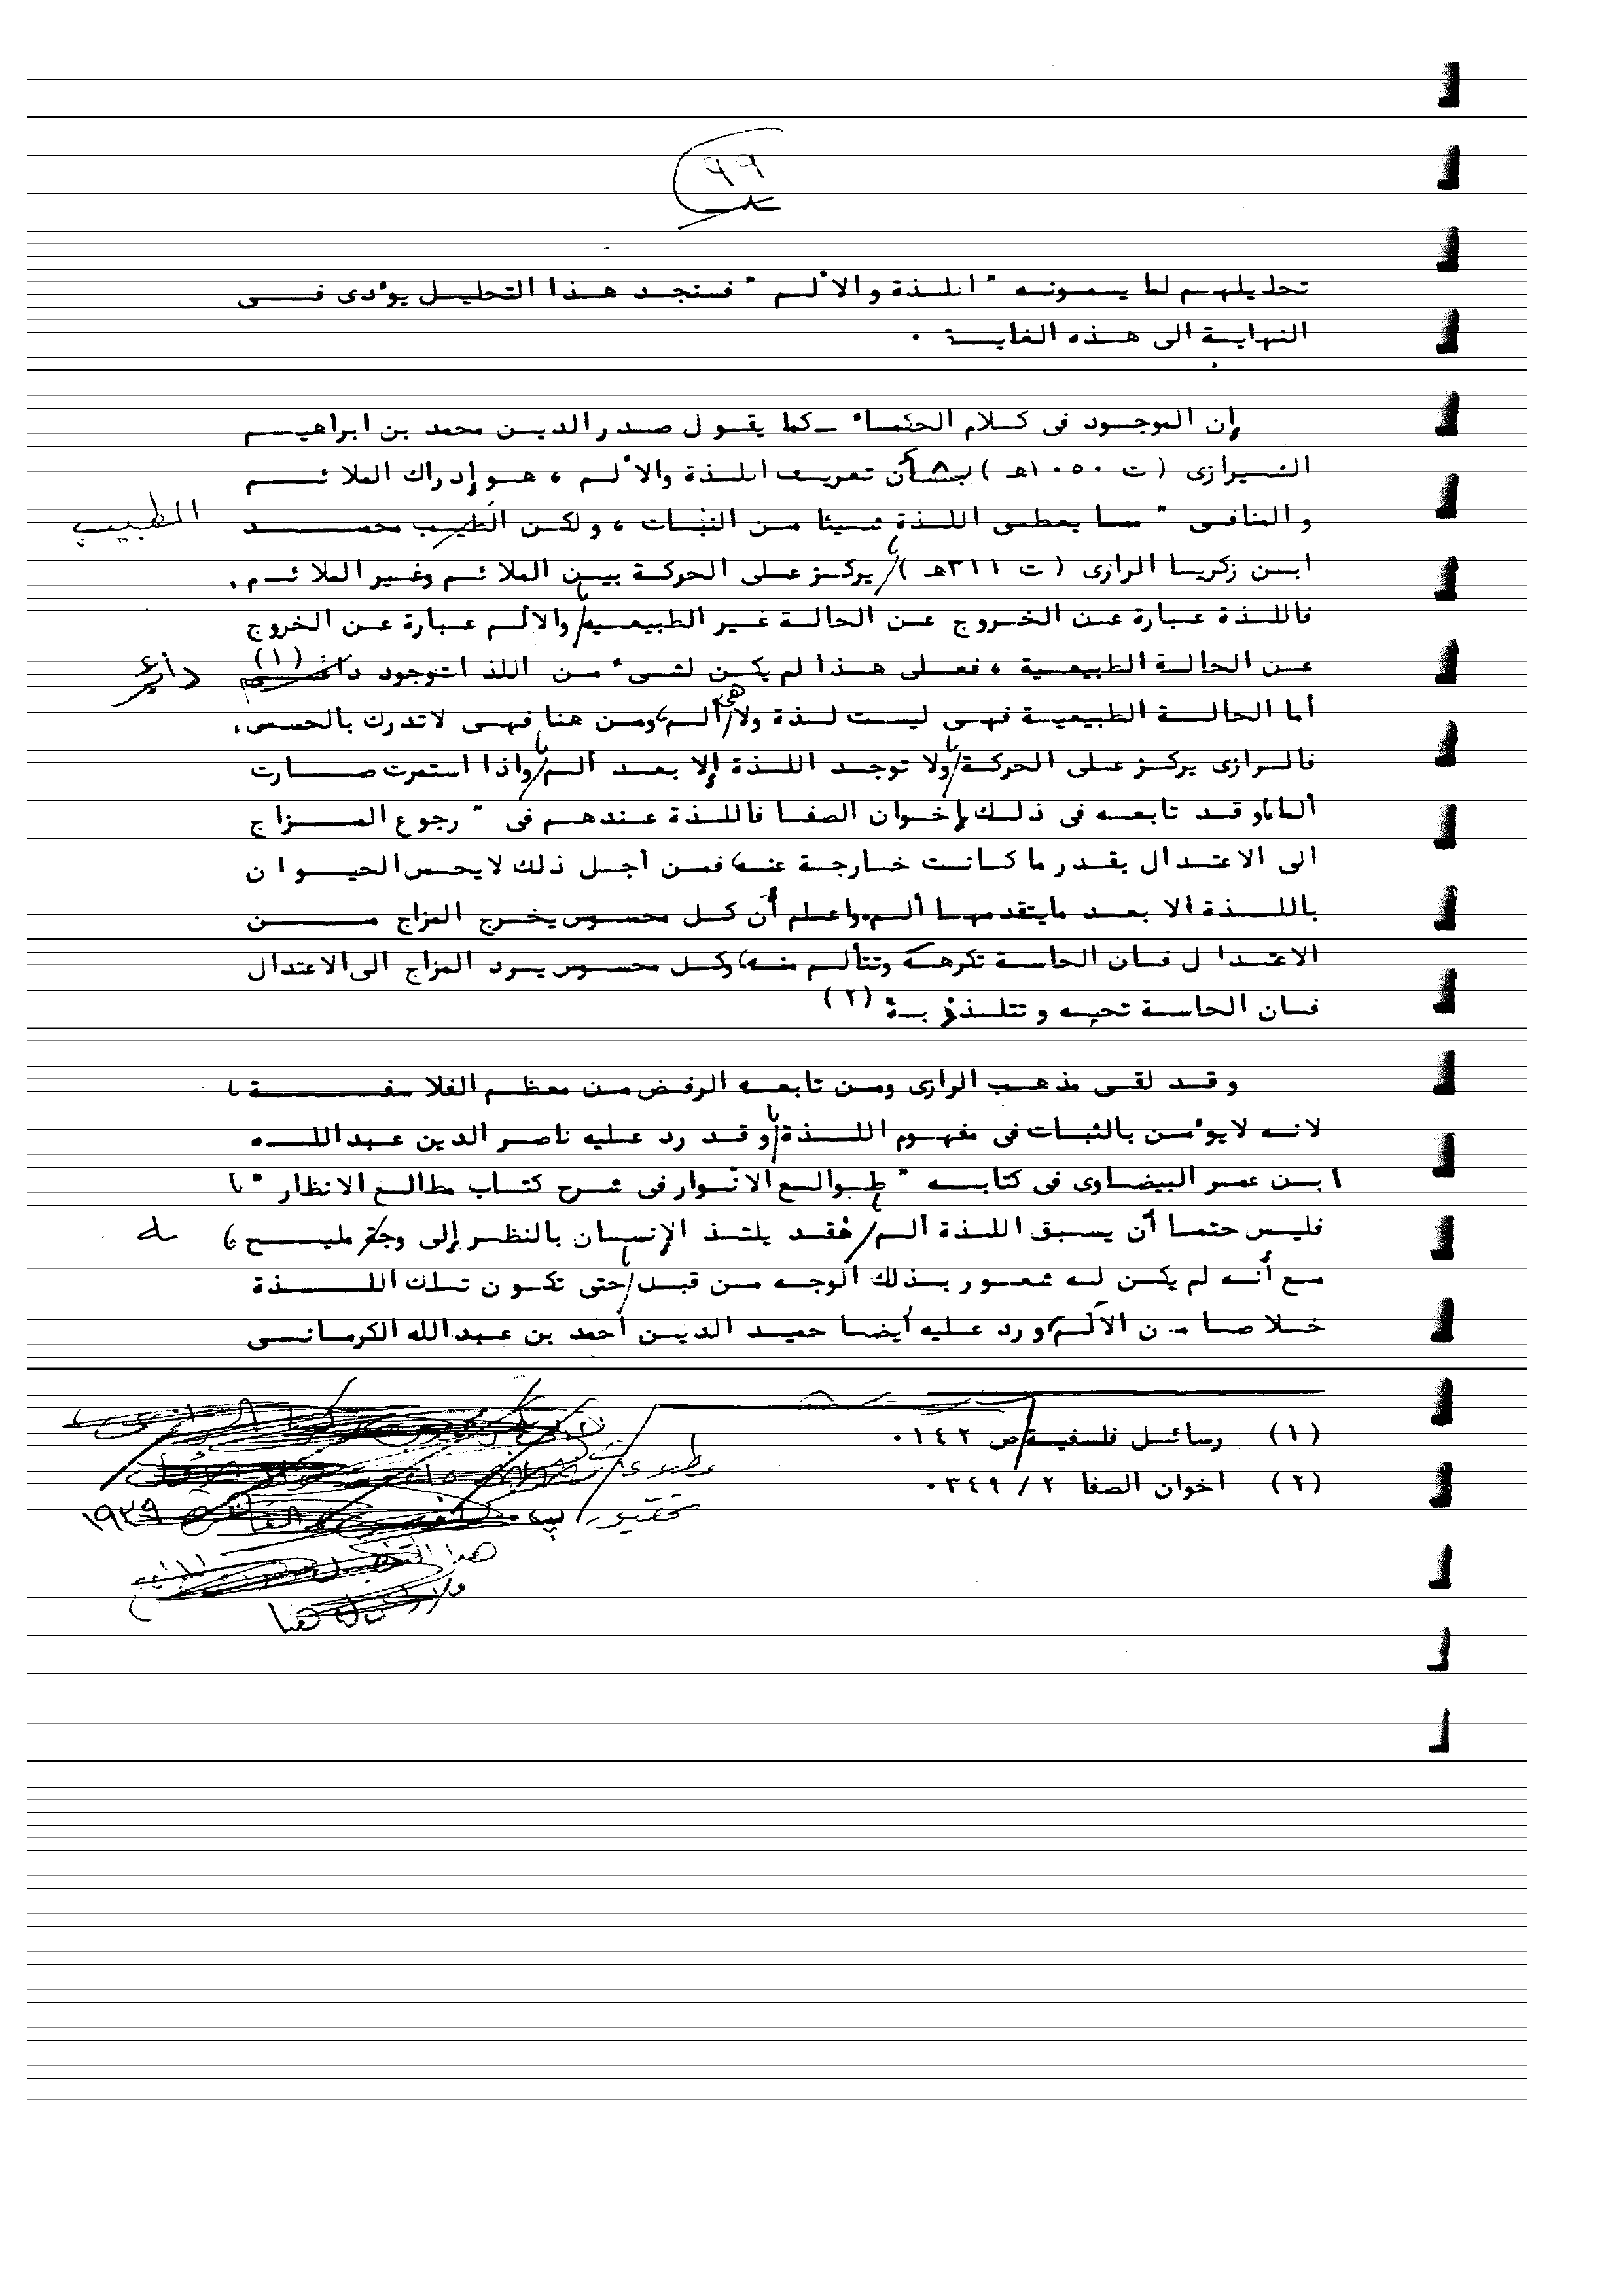 ٩٩
تحليلهم لما يسمونه " اللذة والألم " فسنجد هذا التحليل يؤدى فى
النهاية الى هذه الغاية ٠
إن الموجود فى كلام الحكماء ـ كما يقول صدر الدين محمد بن ابراهيم
الشيرازى ( ت ١٠٥٠هـ ) بشأن تعريف اللذة والألم ، هو إدراك الملائم
والمنافى " مما يعطى اللذة شيئا من الثبات ، ولكن الطبيب محمد الطبيب
ابن زكريا الرازى ( ت ٣١١هـ ) يركز على الحركة بين الملائم وغير الملائم .
فاللذة عبارة عن الخروج عن الحالة غير الطبيعية، والالم عبارة عن الخروج
عن الحالة الطبيعية ، فعلى هذا لم يكن لشىء من اللذات وجود (١)
أما الحالة الطبيعية فهى ليست لذة ولا هى ألم، ومن هنا فهى لاتدرك بالحس .
فالرازى يركز على الحركة، ولا توجد اللذة إلا بعد ألم، واذا استمرت صارت
ألما، وقد تابعه فى ذلك إخوان الصفا فاللذة عندهم فى " رجوع المزاج
الى الاعتدال بقدر ما كانت خارجة عنه، فمن أجل ذلك لايحس الحيوان
باللذة الا بعد مايتقدمها ألم، واعلم أن كل محسوس يخرج المزاج من
الاعتدال فان الحاسة تكرهه وتتألم منه، وكل محسوس يرد المزاج الى الاعتدال
فان الحاسة تحبه وتتلذذ به " (٢)
وقد لقى مذهب الرازى ومن تابعه الرفض من معظم الفلاسفة ،
لانه لايؤمن بالثبات فى مفهوم اللذة، وقد رد عليه ناصر الدين عبدالله
ابن عمر البيضاوى فى كتابه " طوالع الانوار فى شرح كتاب مطالع الانظار " ،
فليس حتما أن يسبق اللذة ألم، فقد يلتذ الإنسان بالنظر إلى وجه مليح ،
مع أنه لم يكن له شعور بذلك الوجه من قبل، حتى تكون تلك اللذة
خلاصا من الألم، ورد عليه أيضا حميد الدين أحمد بن عبدالله الكرمانى
(١) رسائل فلسفية ص ١٤٢٠
(٢) اخوان الصفا ٢ / ٣٤٩٠
تحقيق
١٩٣٩